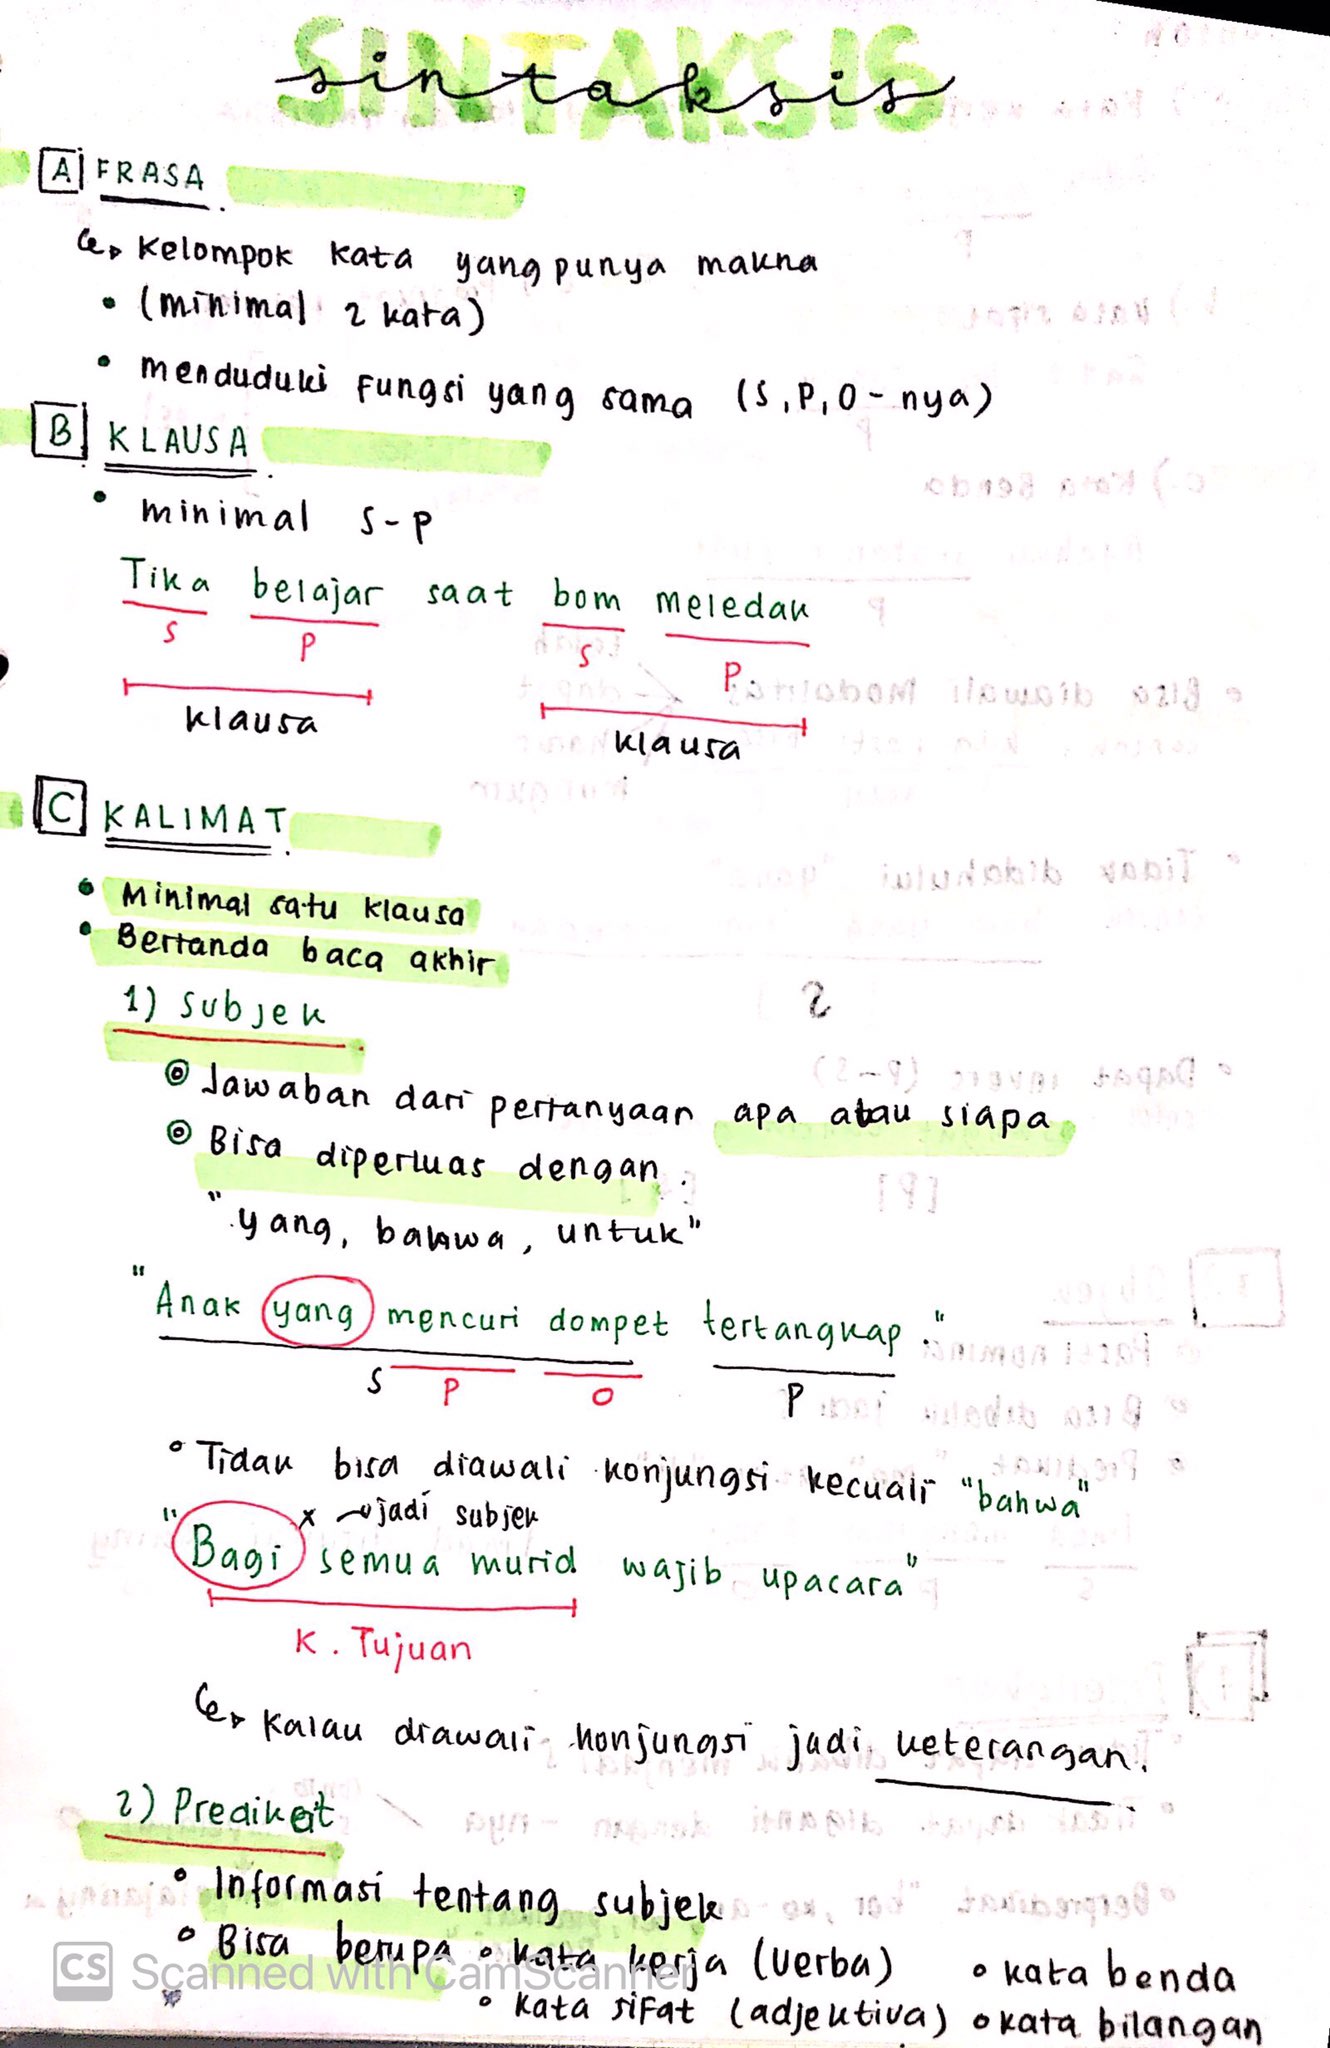 SINTAKSIS
sintaksis
A FRASA
Kelompok kata yang punya makna
• (minimal 2 kata)
• menduduki fungsi yang sama (S, P, O - nya)
B KLAUSA
• minimal S-P
Tika belajar saat bom meledak
S P S P
klausa klausa
C KALIMAT
• Minimal satu klausa
• Bertanda baca akhir
1) Subjek
Jawaban dari pertanyaan apa atau siapa
Bisa diperluas dengan
"yang, bahwa, untuk"
"Anak yang mencuri dompet tertangkap."
S P O P
• Tidak bisa diawali konjungsi kecuali "bahwa"
x jadi subjek
"Bagi semua murid wajib upacara"
K. Tujuan
Kalau diawali konjungsi jadi keterangan.
2) Predikat
• Informasi tentang subjek
• Bisa berupa • kata kerja (verba) • kata benda
• kata sifat (adjektiva) • kata bilangan
CS Scanned with CamScanner